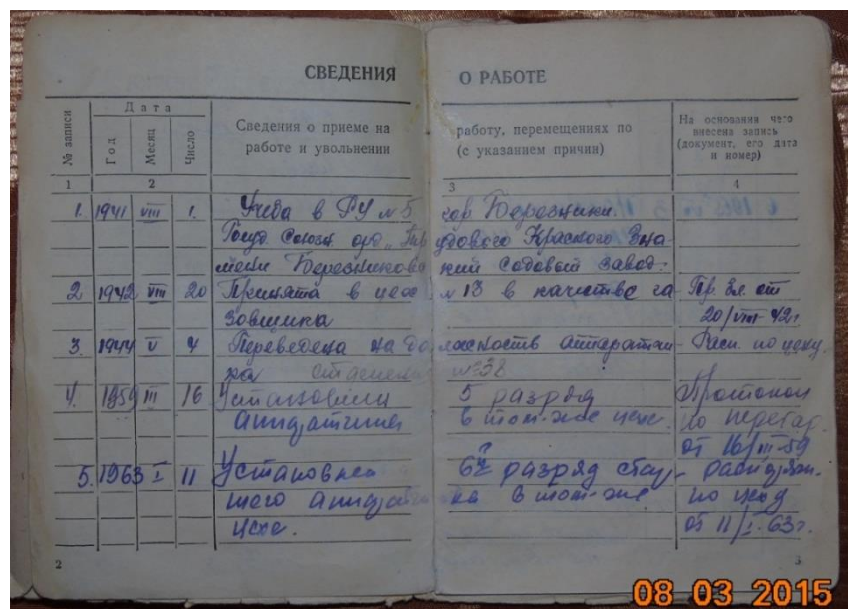 СВЕДЕНИЯ О РАБОТЕ
№ записи
Дата
Год
Месяц
Число
Сведения о приеме на работу, перемещениях по
работе и увольнении (с указанием причин)
На основании чего
внесена запись
(документ, его дата
и номер)
1 2 3 4
1. 1941 VIII 1. Учеба в РУ № 5 гор. Березники.
Госуд. Союзн. орд. Трудового Красного Зна-
мени Березниковский Содовый завод.
2 1942 VIII 20 Принята в цех № 13 в качестве га Пр. Зл. от
зовщика 20/VIII-42г.
3. 1944 V 4 Переведена на должность аппаратчи- Расп. по цеху.
ка №38
4. 1959 III 16 Установили 5 разряд Протокол
аппаратчика в том-же цехе. по
от 16/III-59
5. 1963 I 11 Установлен 6й разряд стар- распоряж.
шего аппаратчика в том-же по цеху
цехе. от 11/I-63г.
2 3
08 03 2015